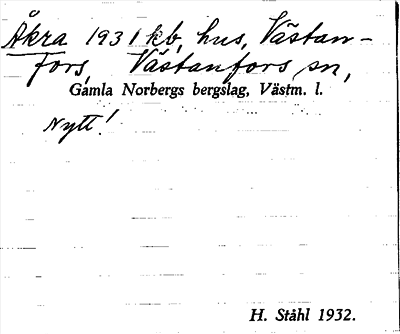 Åkra 1931 kb, hus, Västan-
fors, Västanfors sn,
Gamla Norbergs bergslag, Västm. l.
Nytt!
H. Ståhl 1932.